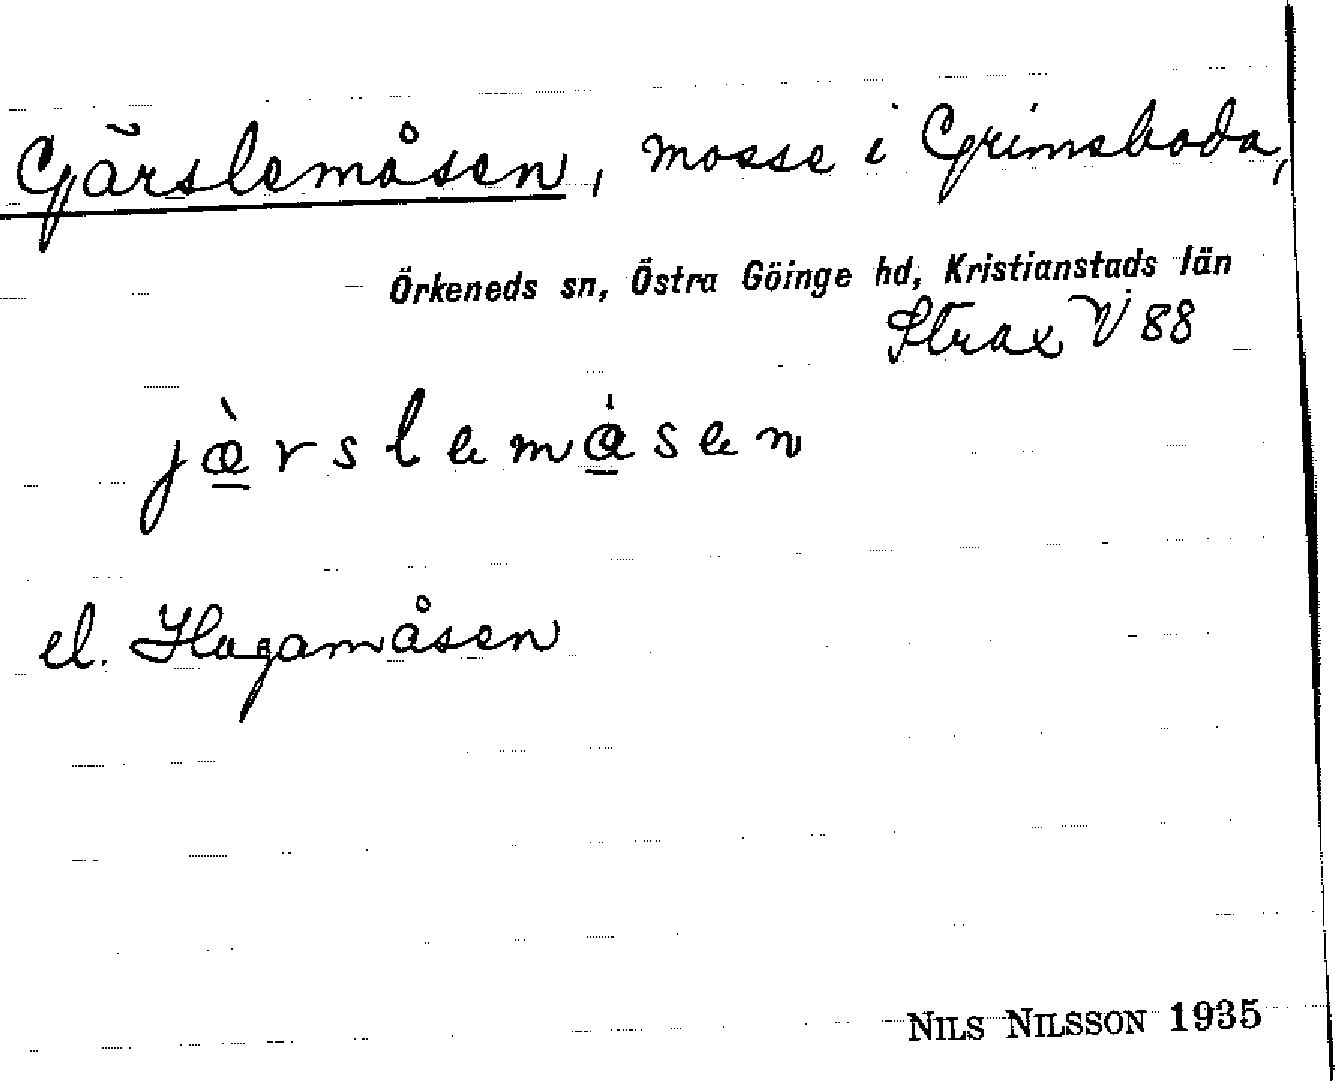 Gärslemåsen, mosse i Grimsboda,
Örkeneds sn, Östra Göinge hd, Kristianstads län
Strax V 88
jæ̀rslemåsen
el. Hagamåsen
NILS NILSSON 1935